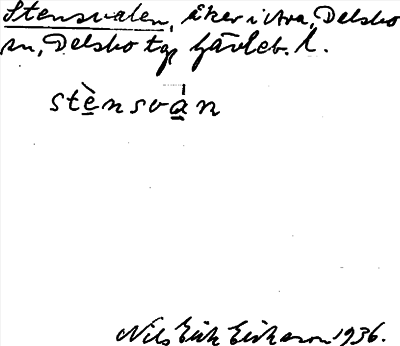 Stensvalen, åker i Ava, Delsbo
sn, Delsbo tg, Gävleb. l.
stènsván
Nils Erik Erikson 1936.